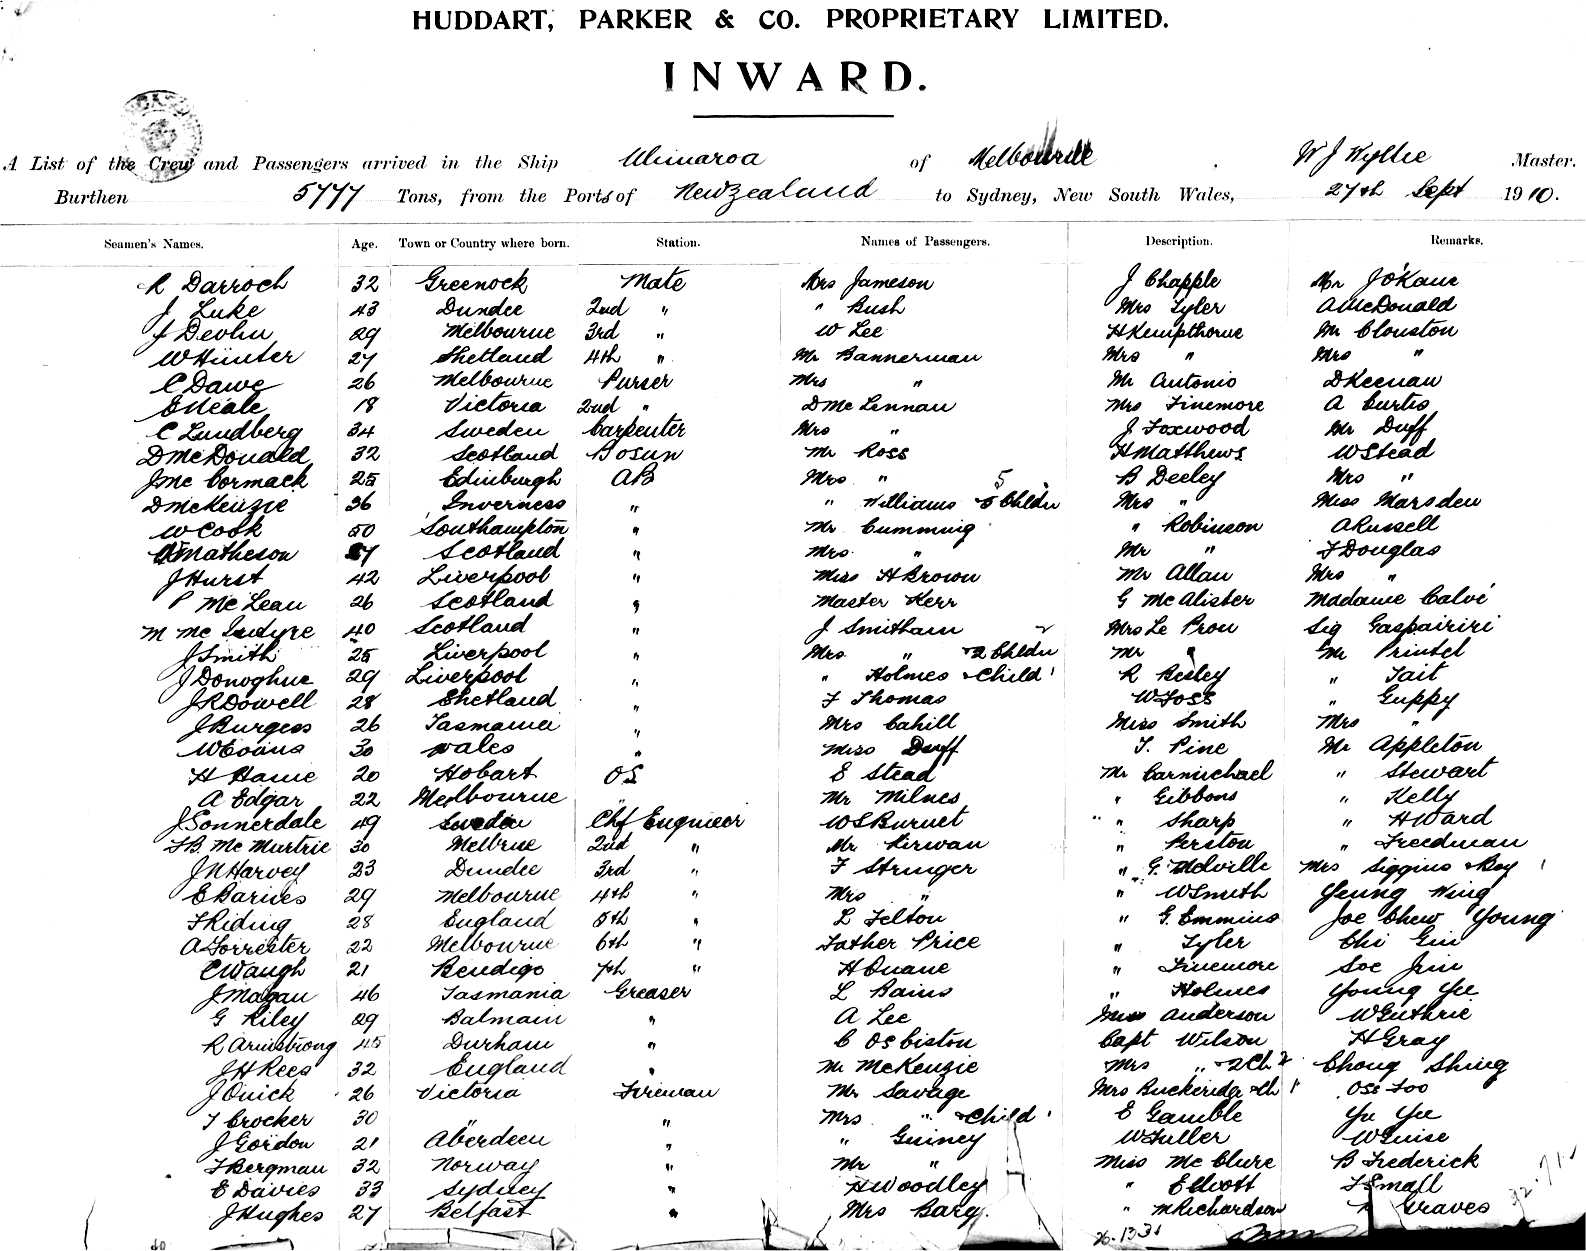 HUDDART, PARKER & CO. PROPRIETARY LIMITED.
INWARD.
A List of the Crew and Passengers arrived in the Ship Ulimaroa of Melbourne W J Wyllie Master.
Burthen 5777 Tons, from the Ports of New Zealand to Sydney, New South Wales, 27th Sept 1910.
Seamen's Names. Age. Town or Country where born. Station. Names of Passengers. Description. Remarks.
R Darroch 32 Greenock Mate Mrs Jameson J Chapple Mr J O'Kane
J Luke 43 Dundee 2nd " " Bush Mrs Tyler A McDonald
J Devlin 29 Melbourne 3rd " W Lee H Kempthorne Mr Clouston
W Hunter 27 Shetland 4th " Mr Bannerman Mrs " Mrs "
C Dawe 26 Melbourne Purser Mrs " Mr Antonio D Keenan
E Neale 18 Victoria 2nd " D McLennan Mrs Finemore A Curtis
C Lundberg 34 Sweden Carpenter Mrs " J Foxwood Mr Duff
D McDonald 32 Scotland Bosun Mr Ross H Matthews W Stead
J McCormack 25 Edinburgh AB Mrs " B Deeley Mrs "
D McKenzie 36 Inverness " " Williams 5 Childn Mrs " Miss Marsden
W Cook 50 Southampton " Mr Cumming " Robinson A Russell
Matheson " Scotland " Mrs " Mr " F Douglas
J Hurst 42 Liverpool " Miss H Brown Mr Allan Mrs "
P McLean 26 Scotland " Master Kerr G McAlister Madame Calvé
M McIntyre 40 Scotland " J Smitham Mrs Le Prou Sig Gaspairiri
J Smith 25 Liverpool " Mrs " & 2 Childn Mr " Mr Printel
J Donoghue 29 Liverpool " " Holmes & Child 1 R Besley " Tait
J R Dowell 28 Shetland " F Thomas W Foss " Guppy
J Burgess 26 Tasmania " Mrs Cahill Miss Smith Mrs "
W Evans 30 Wales " Miss Duff T. Pine Mr Appleton
H Hanie 20 Hobart OS E Stead Mr Carmichael " Stewart
A Edgar 22 Melbourne " Mr Milnes " Gibbons " Kelly
J Sonnerdale 49 Sweden Chf Engineer W S Burnet " Sharp " H Ward
F B McMurtrie 30 Melbrne 2nd " Mr Kirwan " Perston " Freedman
J N Harvey 23 Dundee 3rd " F Stringer " G. Melville Mrs Siggins & Boy 1
E Barnes 29 Melbourne 4th " Mrs " " W Smith Yeung Wing
F Riding 28 England 5th " L Felton " G. Emmins Joe Chew Young
A Forrester 22 Melbourne 6th " Father Price " Tyler Chi Gin
C Waugh 21 Bendigo 7th " H Duane " Finemore Soe Jim
J Magan 46 Tasmania Greaser L Bains " Holmes Young Yee
G Riley 29 Balmain " A Lee Miss Anderson W Guthrie
R Armstrong 45 Durham " C Osbiston Capt Wilson H Gray
J H Rees 32 England " Mr McKenzie Mrs " & 2 Ch 2 Chong Shing
J Quick 26 Victoria Fireman Mr Savage Mrs Buckeridge & Ch 1 Ose Foo
T Crocker 30 " " Mrs " & Child 1 E Gamble Yu Yee
J Gordon 21 Aberdeen " " Guiney W Fuller W Guise
F Bergman 32 Norway " Mr " Miss McClure B Frederick
E Davies 33 Sydney " H Woodley " Elliott F Small
J Hughes 27 Belfast " Mrs Barg. " M Richardson Graves